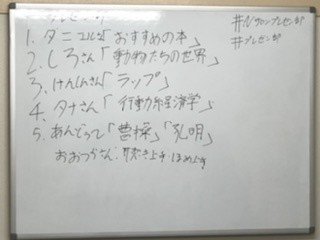 プレゼン部
#Nサロンプレゼン部
#プレゼン部
1. ダニエルは「おすすめの本」
2. しろさん「動物たちの世界」
3. けんしんさん「ラップ」
4. タナさん「行動経済学」
5. あんどって「曹操」「孔明」
おおつかさん: 聞き上手・ほめ上手